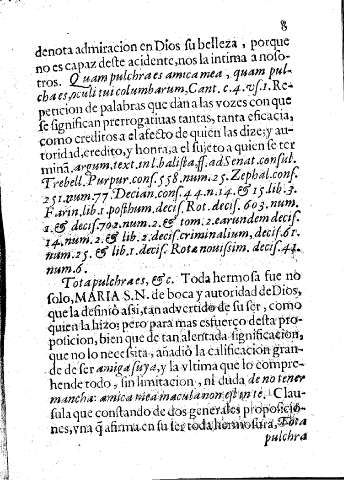 8
denota admiracion en Dios su belleza, porque
no es capaz deste accidente, nos la intima a noso-
tros. Quam pulchra es amica mea, quam pul-
chra es, oculi tui columbarum, Cant. c. 4. vs. 1. Re-
peticion de palabras que dàn a las vozes con que
se significan prerrogatiuas tantas, tanta eficacia,
como creditos a el afecto de quien las dize; y au-
toridad, credito, y honra, a el sujeto a quien se ter
minã. argum. text. in l. balista, ff. ad Senat. consul.
Trebell. Purpur. cons. 558. num. 25. Zephal. cons.
251. num. 77. Decian. cons. 44. n. 14. & 15. lib. 3.
Farin. lib. 1. posthum. decis. Rot. decis. 603. num.
1. & decis. 702. num. 2. & tom. 2. earundem decis.
14. num. 2. & lib. 2. decis. criminalium, decis. 61.
num. 25. & lib. 1. decis. Rotæ nouissim. decis. 44.
num. 6.
Tota pulchra es, & c. Toda hermosa fue no
solo, MARIA S.N. de boca y autoridad de Dios,
que la definiò assi, tan advertido de su ser, como
quien la hizo; pero para mas esfuerço desta pro-
posicion, bien que de tan alentada significacion,
que no lo necessita, añadiò la calificacion gran-
de de ser amiga suya, y la vltima que lo compre-
hende todo, sin limitacion, ni duda de no tener
mancha: amica mea macula non est in te. Clau-
sula que constando de dos generales proposicio-
nes, vna q̃ afirma en su ser toda hermosura, Tota
pulchra